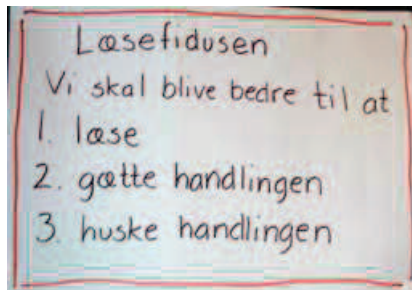 Læsefidusen
Vi skal blive bedre til at
1. læse
2. gætte handlingen
3. huske handlingen